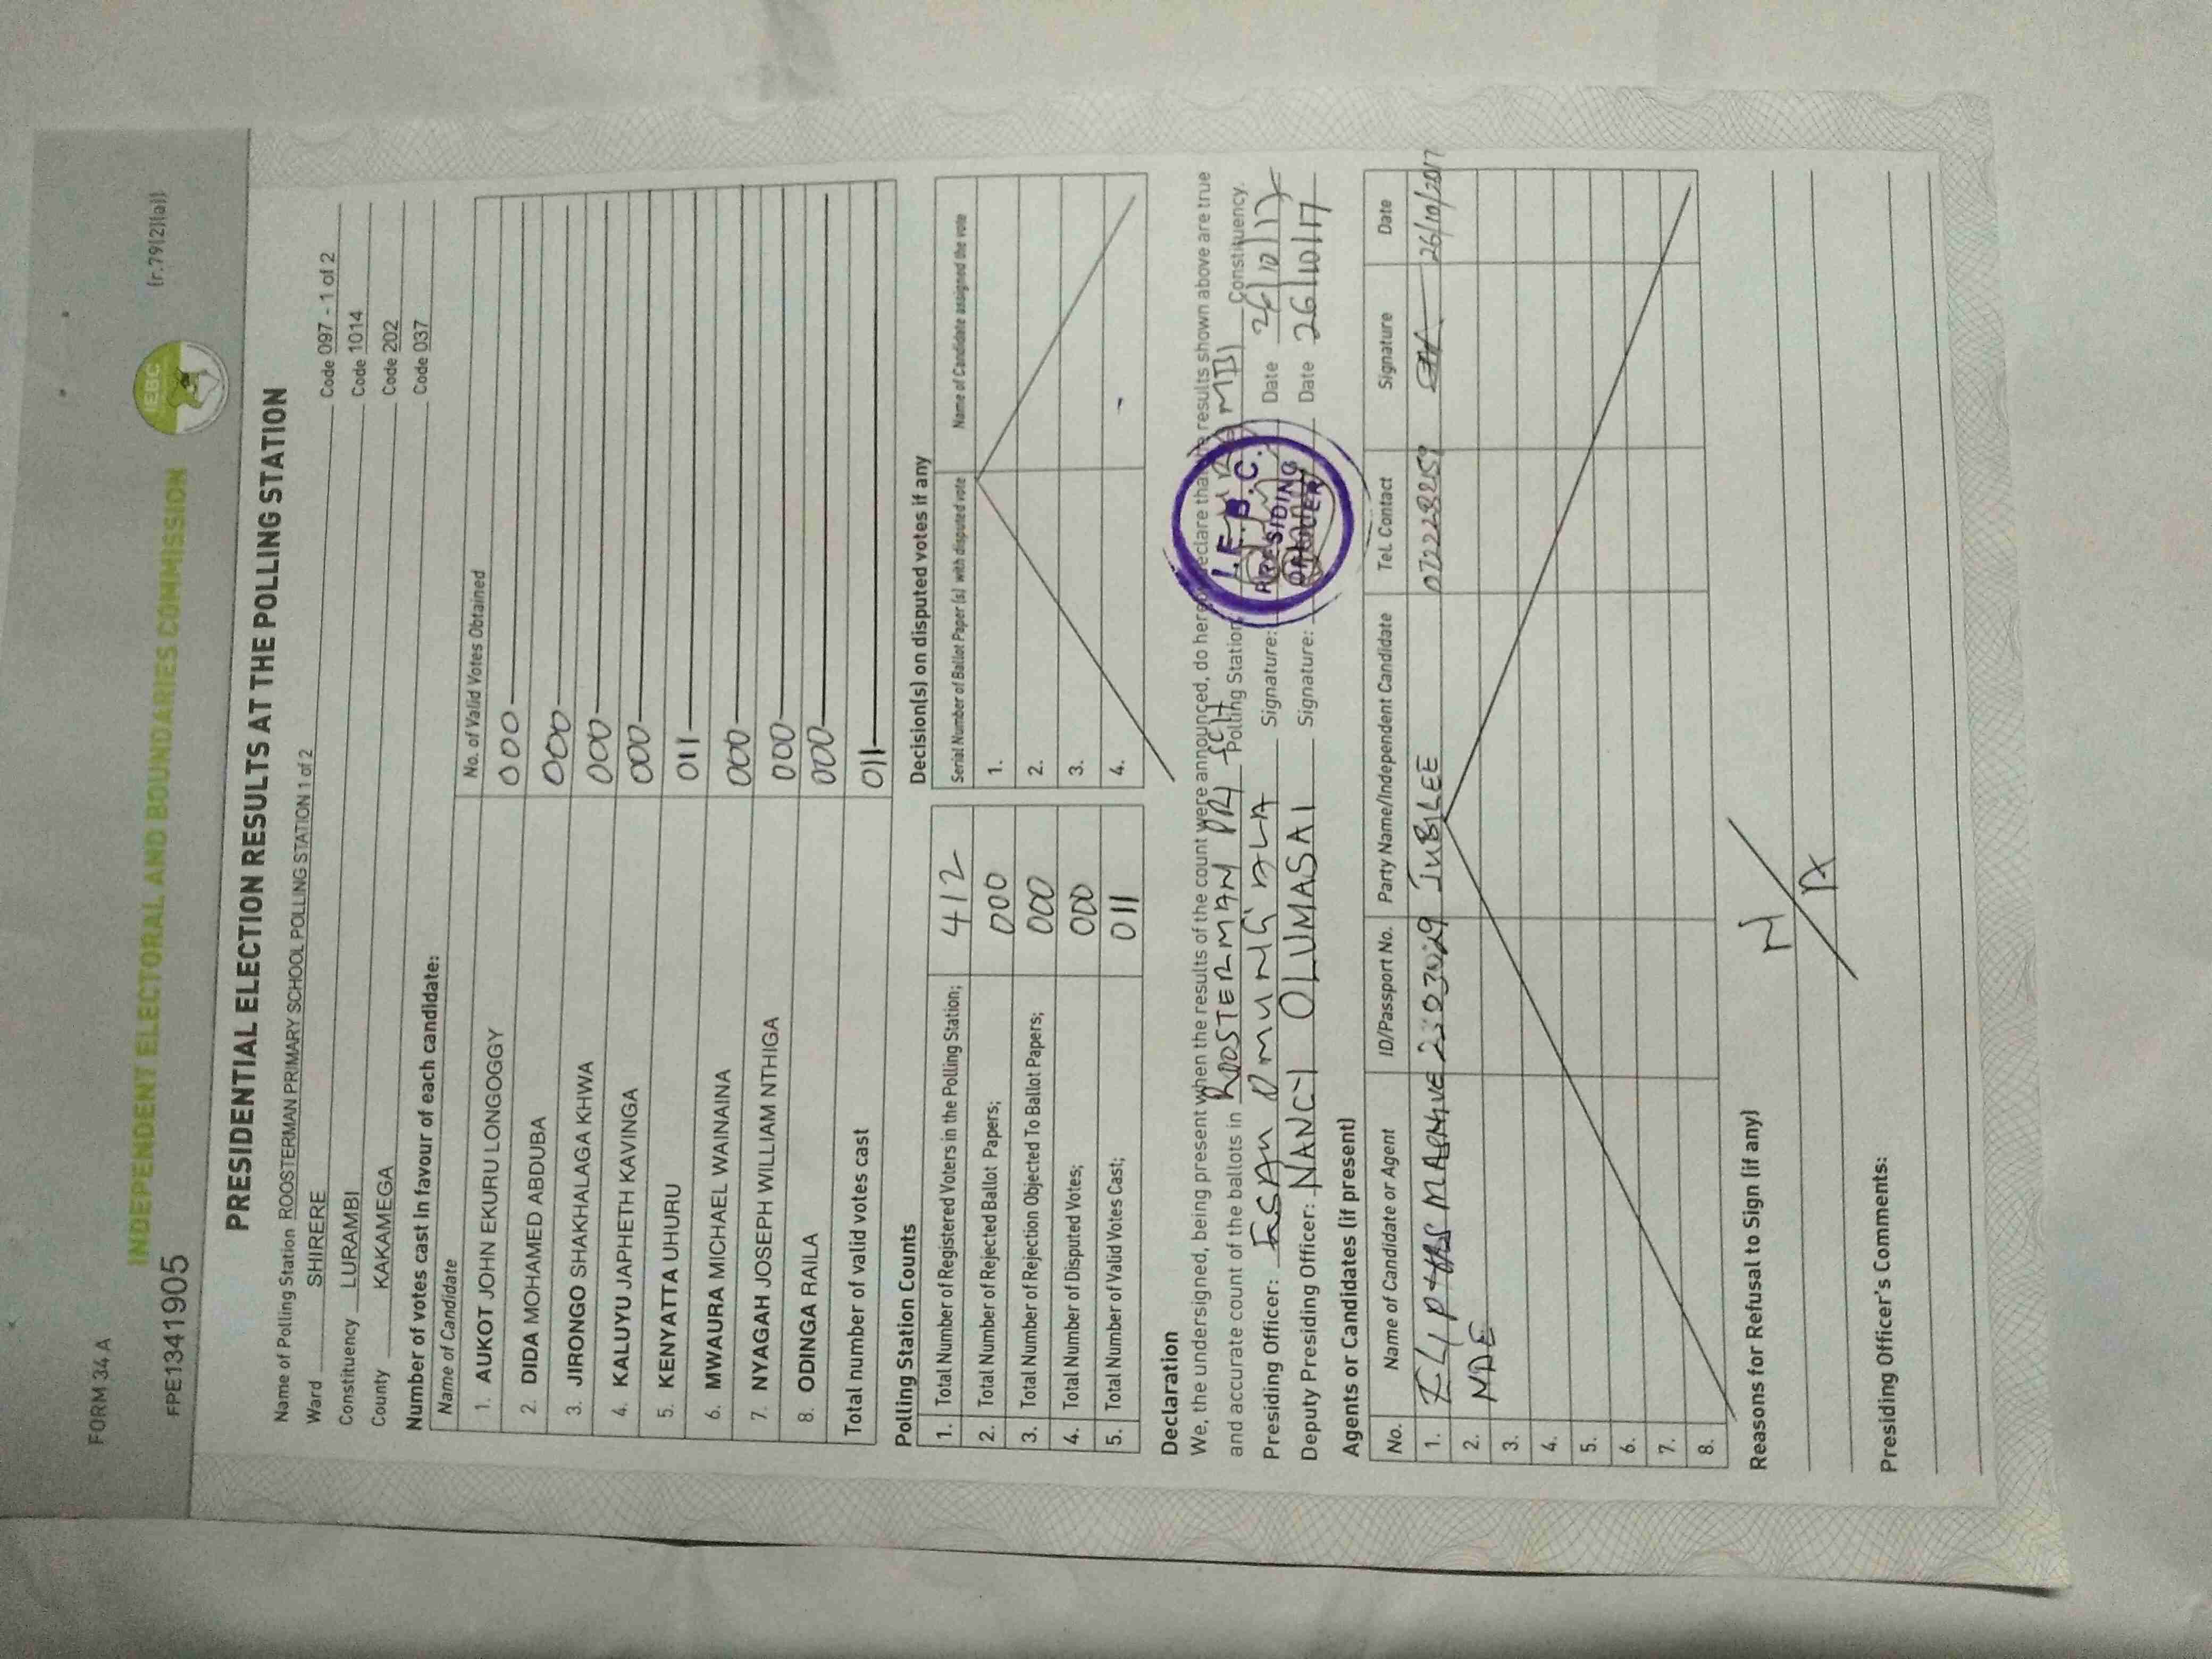 FORM 34 A
(r.79(2)(a))
INDEPENDENT ELECTORAL AND BOUNDARIES COMMISSION
IEBC
FPE1341905
PRESIDENTIAL ELECTION RESULTS AT THE POLLING STATION
Name of Polling Station ROOSTERMAN PRIMARY SCHOOL POLLING STATION 1 of 2 Code 097 - 1 of 2
Ward SHIRERE Code 1014
Constituency LURAMBI Code 202
County KAKAMEGA Code 037
Number of votes cast in favour of each candidate:
Name of Candidate No. of Valid Votes Obtained
1. AUKOT JOHN EKURU LONGOGGY 000
2. DIDA MOHAMED ABDUBA 000
3. JIRONGO SHAKHALAGA KHWA 000
4. KALUYU JAPHETH KAVINGA 000
5. KENYATTA UHURU 011
6. MWAURA MICHAEL WAINAINA 000
7. NYAGAH JOSEPH WILLIAM NTHIGA 000
8. ODINGA RAILA 000
Total number of valid votes cast 011
Polling Station Counts
1. Total Number of Registered Voters in the Polling Station; 412
2. Total Number of Rejected Ballot Papers; 000
3. Total Number of Rejection Objected To Ballot Papers; 000
4. Total Number of Disputed Votes; 000
5. Total Number of Valid Votes Cast; 011
Decision(s) on disputed votes if any
Serial Number of Ballot Paper (s) with disputed vote Name of Candidate assigned the vote
1.
2.
3.
4.
Declaration
We, the undersigned, being present when the results of the count were announced, do hereby declare that the results shown above are true
and accurate count of the ballots in ROOSTERMAN PRI Polling Station Constituency.
Presiding Officer: Signature: Date 26/10/17
Deputy Presiding Officer: NANCY OLUMASAI Signature: Date 26/10/17
I.E.B.C.
PRESIDING
OFFICER
Agents or Candidates (if present)
No. Name of Candidate or Agent ID/Passport No. Party Name/Independent Candidate Tel. Contact Signature Date
1. JUBLEE 26/10/2017
2.
3.
4.
5.
6.
7.
8.
Reasons for Refusal to Sign (if any)
N/A
Presiding Officer's Comments: